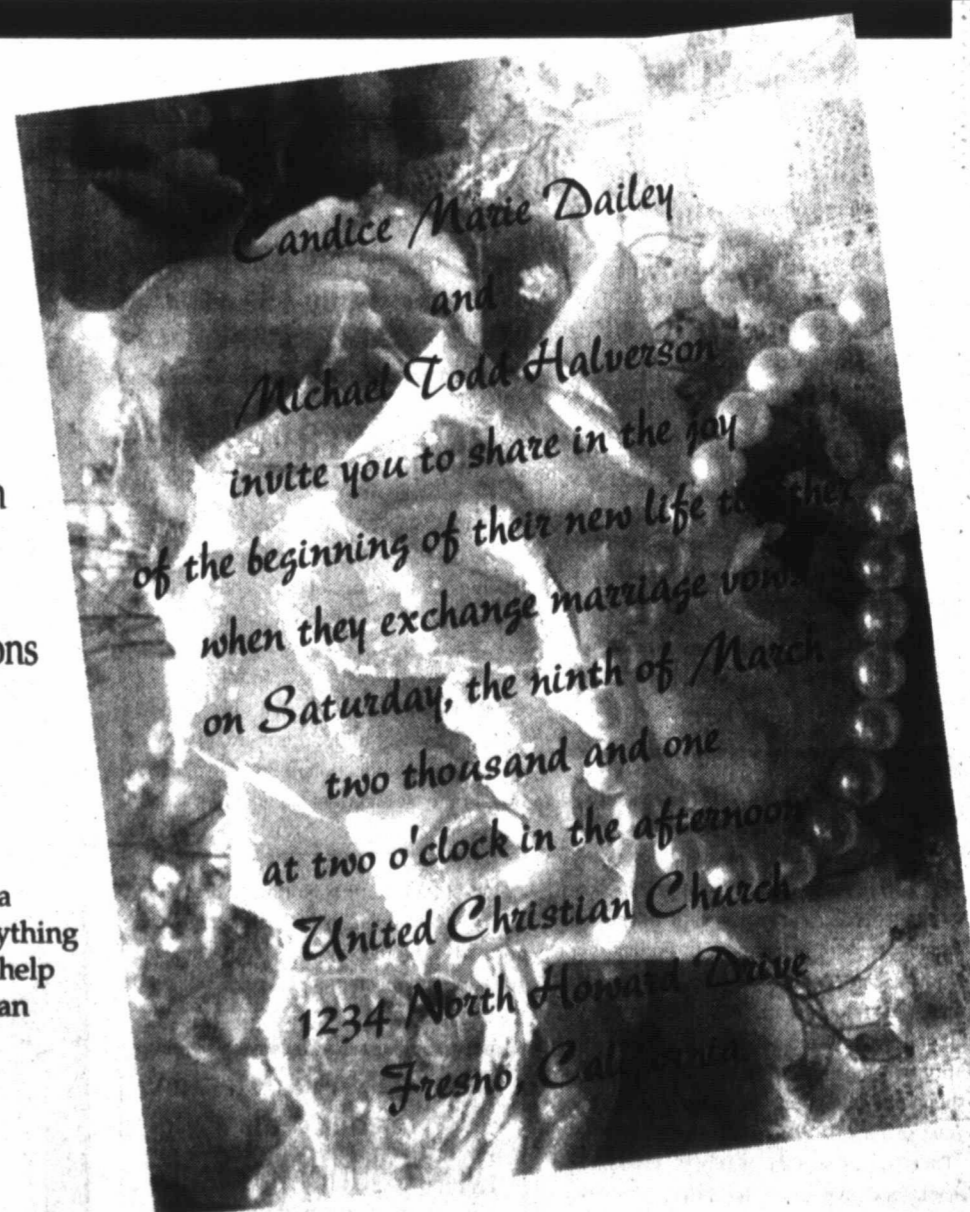 Candice Marie Dailey
and
Michael Todd Halverson
invite you to share in the joy
of the beginning of their new life together
when they exchange marriage vows
on Saturday, the ninth of March
two thousand and one
at two o'clock in the afternoon
United Christian Church
1234 North Howard Drive
Fresno, California
ons
a
ything
help
an